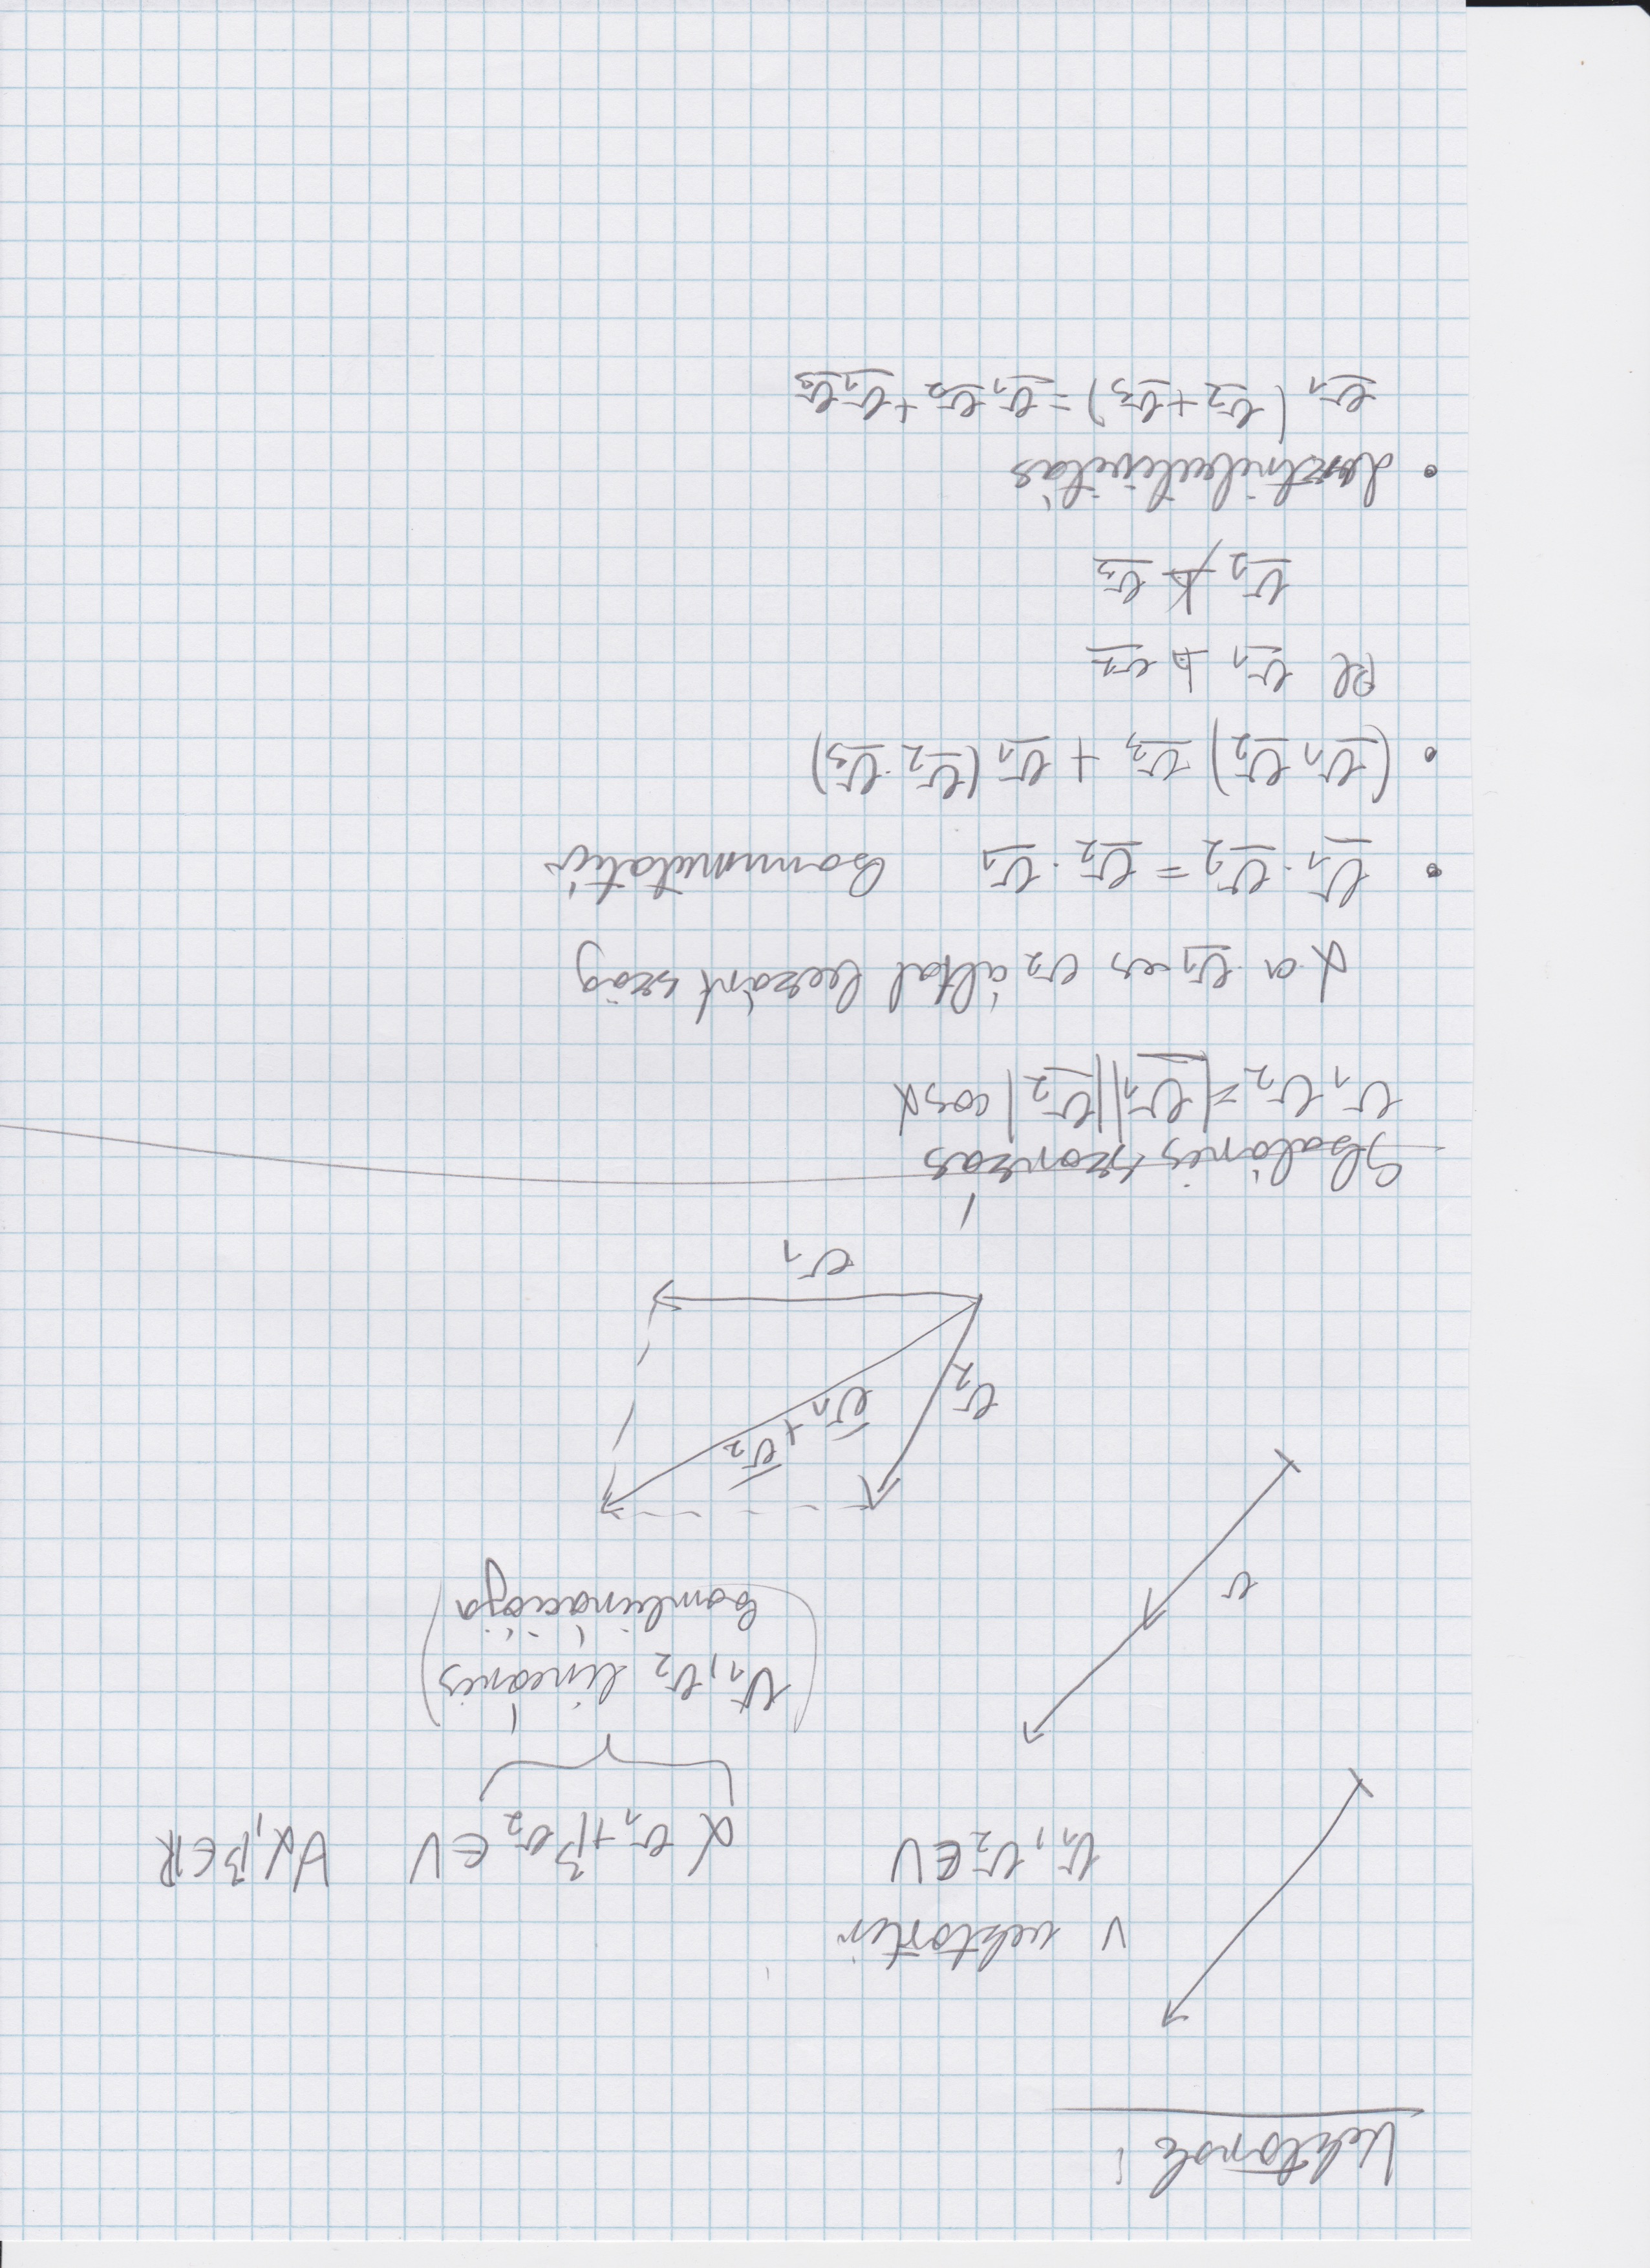 Vektorok:
V vektortér
v₁, v₂ ∈ V α v₁ + β v₂ ∈ V ∀α, β ∈ ℝ
(v₁, v₂ lineáris
kombinációja)
v
v₂
v₁ + v₂
v₁
Skaláris szorzás
v₁ v₂ = |v₁||v₂| cos α
α a v₁ és v₂ által bezárt szög
• v₁ · v₂ = v₂ · v₁ kommutatív
• (v₁ v₂) v₃ ≠ v₁ (v₂ · v₃)
Pl v₁ ∦ v₂
v₂ ∦ v₃
• disztributivitás
v₁ (v₂ + v₃) = v₁ v₂ + v₁ v₃